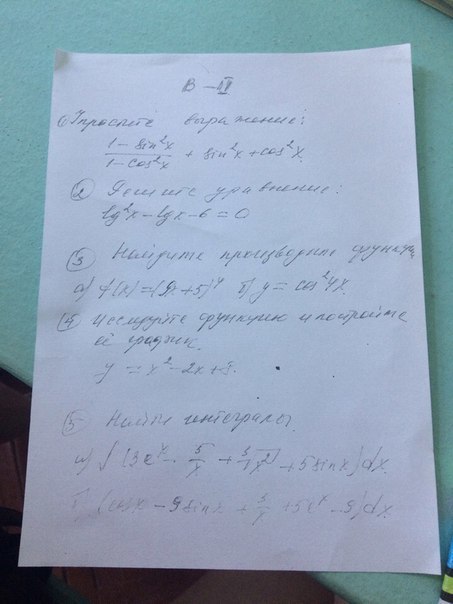 В-II
1) Упростите выражение:
(1 - sin²x)/(1 - cos²x) + sin²x + cos²x
② Решите уравнение:
lg²x - lgx - 6 = 0
③ Найдите производные
а) f(x) = (9x + 5)⁴ б) y = cos²4x.
④ Исследуйте функцию и постройте
её график.
y = x² - 2x + 8.
⑤ Найти интегралы.
а) ∫ (3eˣ - 5/x + + 5 sinx) dx
б) (cosx - 9 sinx + 3/x + 5eˣ - 9) dx.